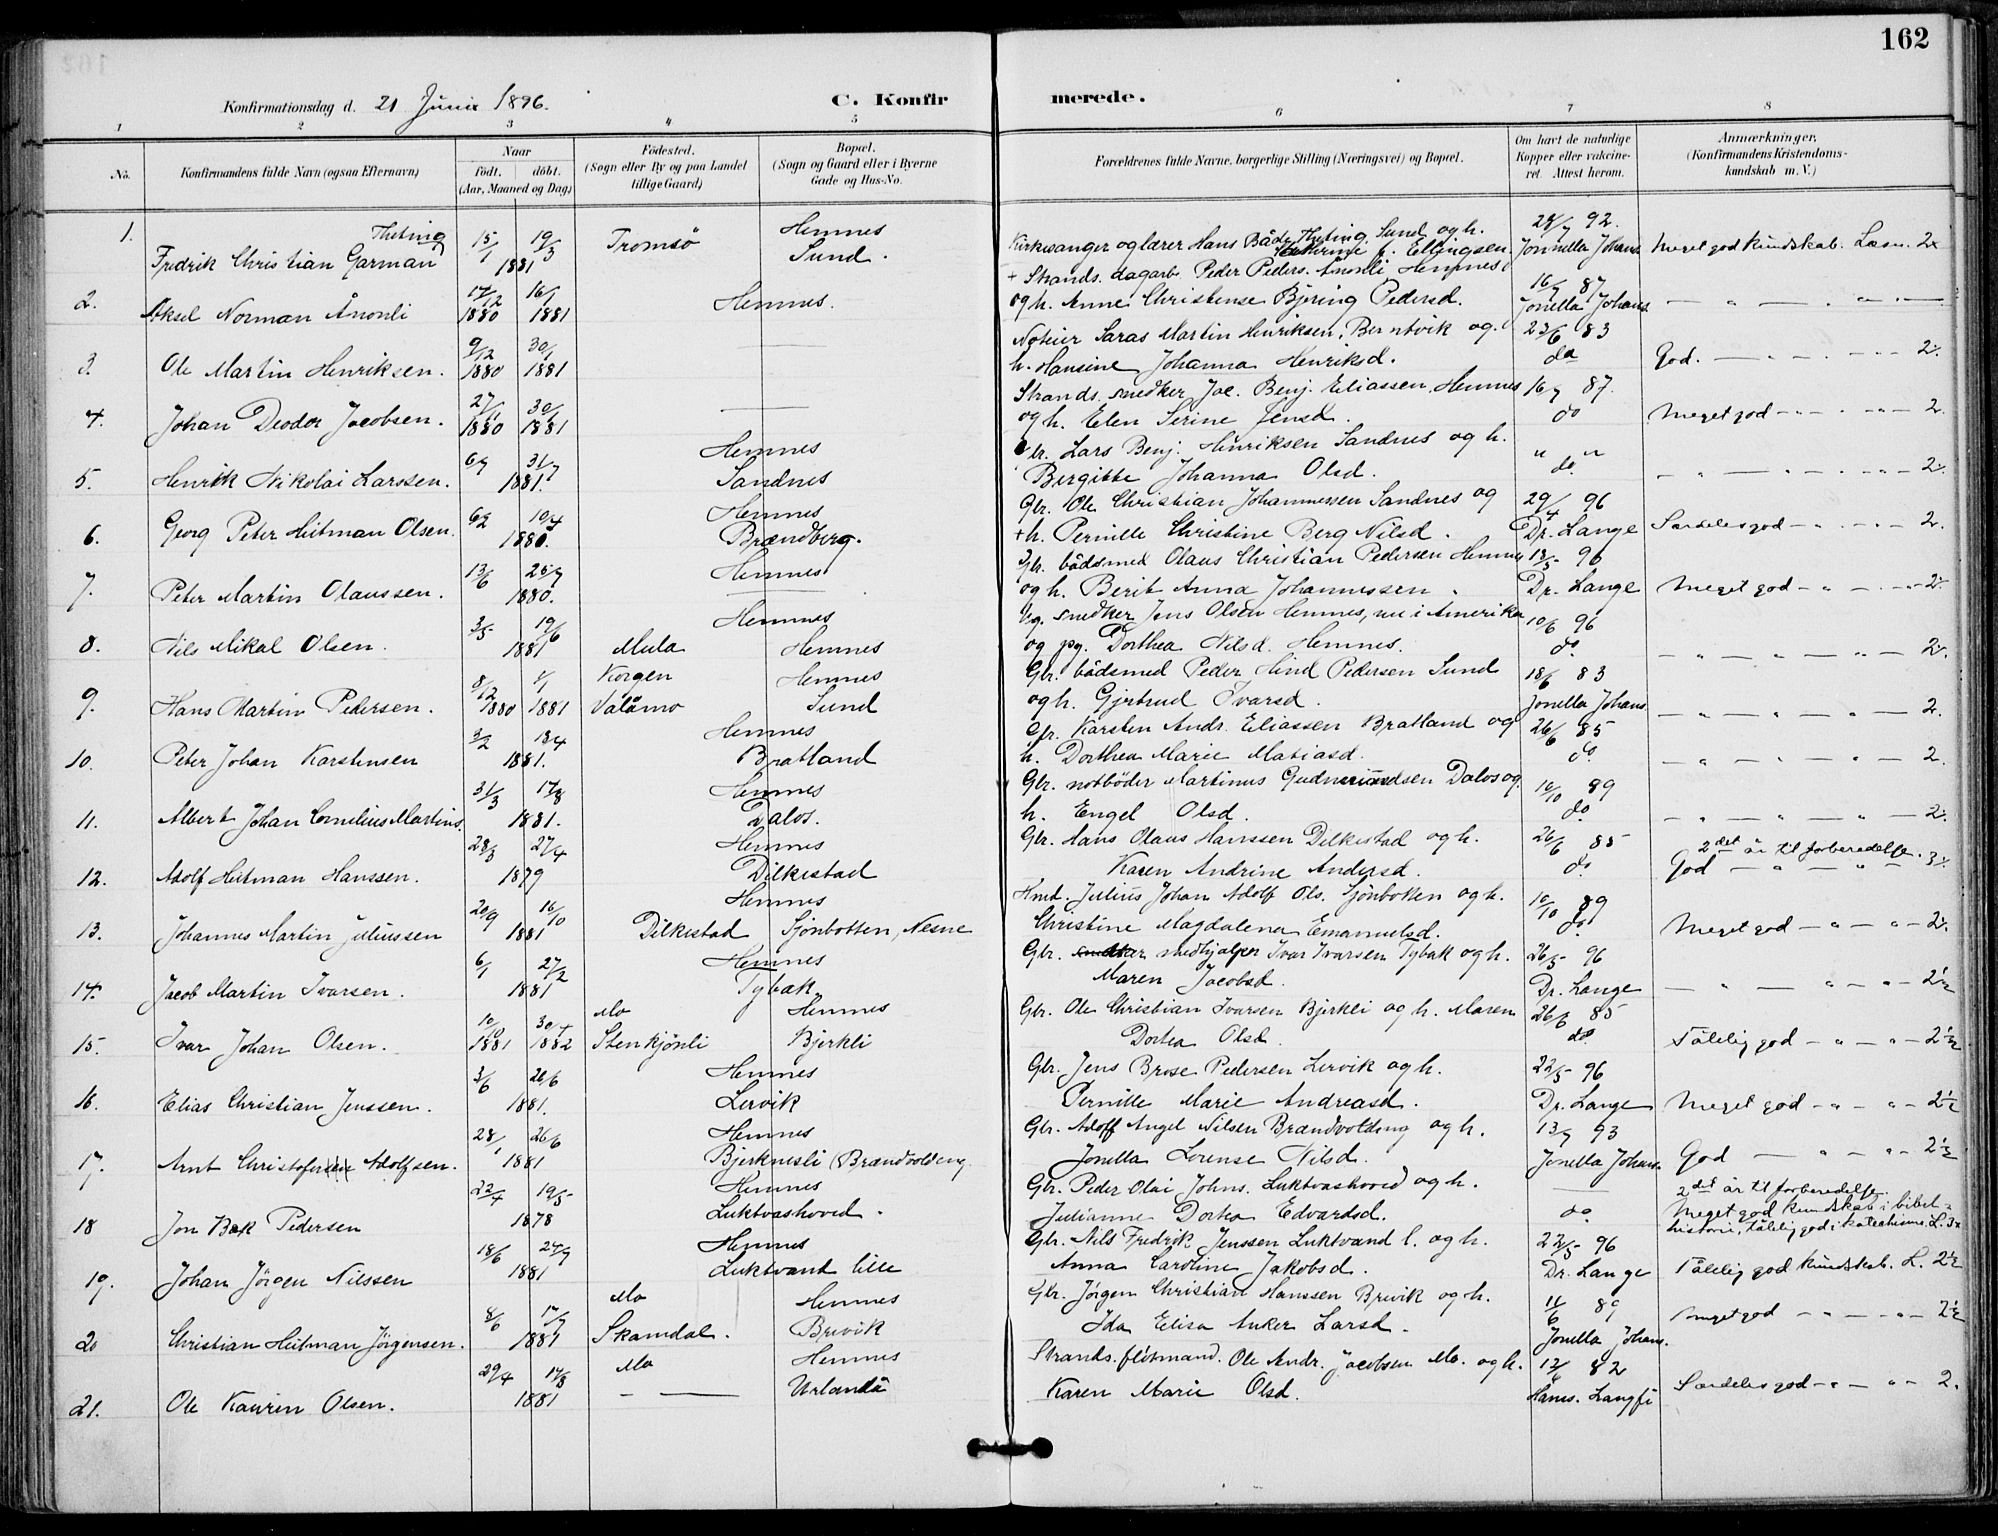 162
Konfirmationsdag d. 21 Juni 1896. C. Konfirmerede.
1 2 3 4 5 6 7 8
No. Konfirmandens fulde Navn (ogsaa Efternavn) Naar födt. döbt. (Aar, Maaned og Dag) Födested. (Sogn eller By og paa Landet tillige Gaard) Bopæl. (Sogn og Gaard eller i Byerne Gade og Hus-No. Forældrenes fulde Navne, borgerlige Stilling (Næringsvei) og Bopæl. Om havt de naturlige Kopper eller vakcineret. Attest herom. Anmærkninger. (Konfirmandens Kristendomskundskab m. V.)
1. Theting Hemnes Kirkesanger og lærer Hans Både Theting, Sund og h. 92.
Fredrik Christian Garman 15/1 19/3 1881 Tromsö Sund. f. Ellingsen. Jonella Johans. Meget god kundskab. Læsn. 2
+ Strands. dagarb. Peder Peders. Ånonli Hemnes 16/7 87
2. Aksel Norman Ånonli 17/12 1880 16/1 1881 Hemnes. og h. Anne Christense Bjering Pedersd. Jonella Johans. — " — " —
Noteier Saras Martin Henriksen, Berntvik og 23/6 83
3. Ole Martin Henriksen. 9/12 1880 30/1 1881 — h. Hansine Johanna Henriksd. do God. — " — 2.
Strands. snedker Jac. Benj. Eliassen, Hemnes 16/7 87.
4. Johan Deodor Jacobsen. 27/11 1880 30/1 1881 — og h. Elen Serine Jensd. do Meget god — " — 2.
Hemnes Gbr. Lars Benj. Henriksen Sandnes og h. " "
5. Henrik Nikolai Larssen. 6/7 31/7 1881. Sandnes Bergitte Johanna Olsd. do. — " — 2
Hemnes Gbr. Ole Christian Johannessen Sandnes og 29/4 96
6. Georg Peter Hitman Olsen. 6/2 10/4 1880. Brændberg. + h. Pernille Christine Berg Nilsd. Dr. Lange Særdeles god — " — 2.
Hemnes Gbr. bådsmed Olaus Christian Pedersen Hemnes 13/5 96
7. Peter Martin Olaussen. 13/6 25/7 1880. — og h. Berit Anna Johannessen. Dr. Lange Meget god — " — 2
Hemnes snedker Jens Olsen Hemnes, nu i Amerika 10/6 96
8. Nils Mikal Olsen. 3/5 19/6 1881 Mula Hemnes og pg. Dorthea Nilsd. Hemnes. do. — " — " — 2.
Korgen Hemnes Gbr. bådsmed Peder Hind Pedersen Sund 18/6 83
9. Hans Martin Pedersen. 8/12 1880 1/1 1881 Valåmo Sund og h. Gjertrud Ivarsd. Jonella Johans. — " — " — 2.
Hemnes Gbr. Karsten Andr. Eliassen Bratland og 26/6 85
10. Peter Johan Karstensen 3/2 18/4 1881. Bratland h. Dorthea Marie Matiasd. do. — " — " — 2.
Hemnes Gbr. notböder Martinus Gudmundsen Dalos og 10/10 89
11. Albert Johan Cornelius Martins. 31/3 17/8 1881. Dalos. h. Engel Olsd. do — " — " — 2.
Hemnes Gbr. Hans Olaus Hanssen Dilkestad og h. 26/6 85 2det år til forberedelse.
12. Adolf Hitman Hanssen. 28/3 27/4 1879 Dilkestad Karen Andrine Andersd. do. God — " — " — 3
Hemnes Hmd. Julius Johan Adolf Ols. Sjonbotten og h. 10/10 89
13. Johannes Martin Juliussen 20/9 16/10 1881 Dilkestad Sjonbotten, Nesne Christine Magdalena Emanuelsd. do Meget god — " — " — 2.
Hemnes Gbr. snedker medhjælper Ivar Ivarsen Tybak og h. 26/5 96
14. Jacob Martin Ivarsen. 6/1 27/2 1881 Tybak. Maren Jacobsd. Dr. Lange — " — " — 2½
Mo Hemnes Gbr. Ole Christian Ivarsen Bjerkli og h. Maren 26/6 85
15. Ivar Johan Olsen. 10/10 1881 30/4 1882 Stenkjönli Bjerkli Dortea Olsd. do. Tålelig god — " — " — 2½
Hemnes Gbr. Jens Brose Pedersen Lervik og h. 22/5 96
16. Elias Christian Jenssen. 3/6 26/6 1881. Lervik Pernille Marie Andreasd. Dr. Lange Meget god — " — " — 2½
Hemnes Gbr. Adolf Angel Nilsen Brændvolding og h. 13/7 93
17. Arnt Christofersen Adolfsen. 28/1 26/6 1881 Bjerknesli (Brændvoldeng Jonella Lorense Nilsd. Jonella Johans. God — " — " — 2½
Hemnes Gbr. Peder Olai Johns. Luktvashoved og h. — 2det år til forberedelse.
18 Jon Bak Pedersen 22/4 19/5 1878 Luktvashoved. Julianne Dortea Edvardsd. do. Meget god kundskab i bibelhistorie, tålelig god i katechisme. L. 3
Hemnes Gbr. Nils Fredrik Jenssen Luktvand l. og h. 22/5 96
19. Johan Jörgen Nilssen 18/6 24/7 1881 Luktvand lille Anna Caroline Jakobsd. Dr. Lange Tålelig god kundskab. L. 2½
Mo Hemnes Gbr. Jörgen Christian Hanssen Brevik og h. 11/6 89
20 Christian Hitman Jörgensen. 8/6 17/7 1881 Skamdal. Brevik Ida Elisa Anker Larsd. Jonella Johans. meget god — " — " — 2½
Mo Hemnes Strands. flötmand. Ole Andr. Jacobsen Mo. og h. 82
21. Ole Kaurin Olsen. 29/4 14/8 1881 — — Urlandå Karen Marie Olsd. Hans. Langfj Særdeles god — " — " — 2.